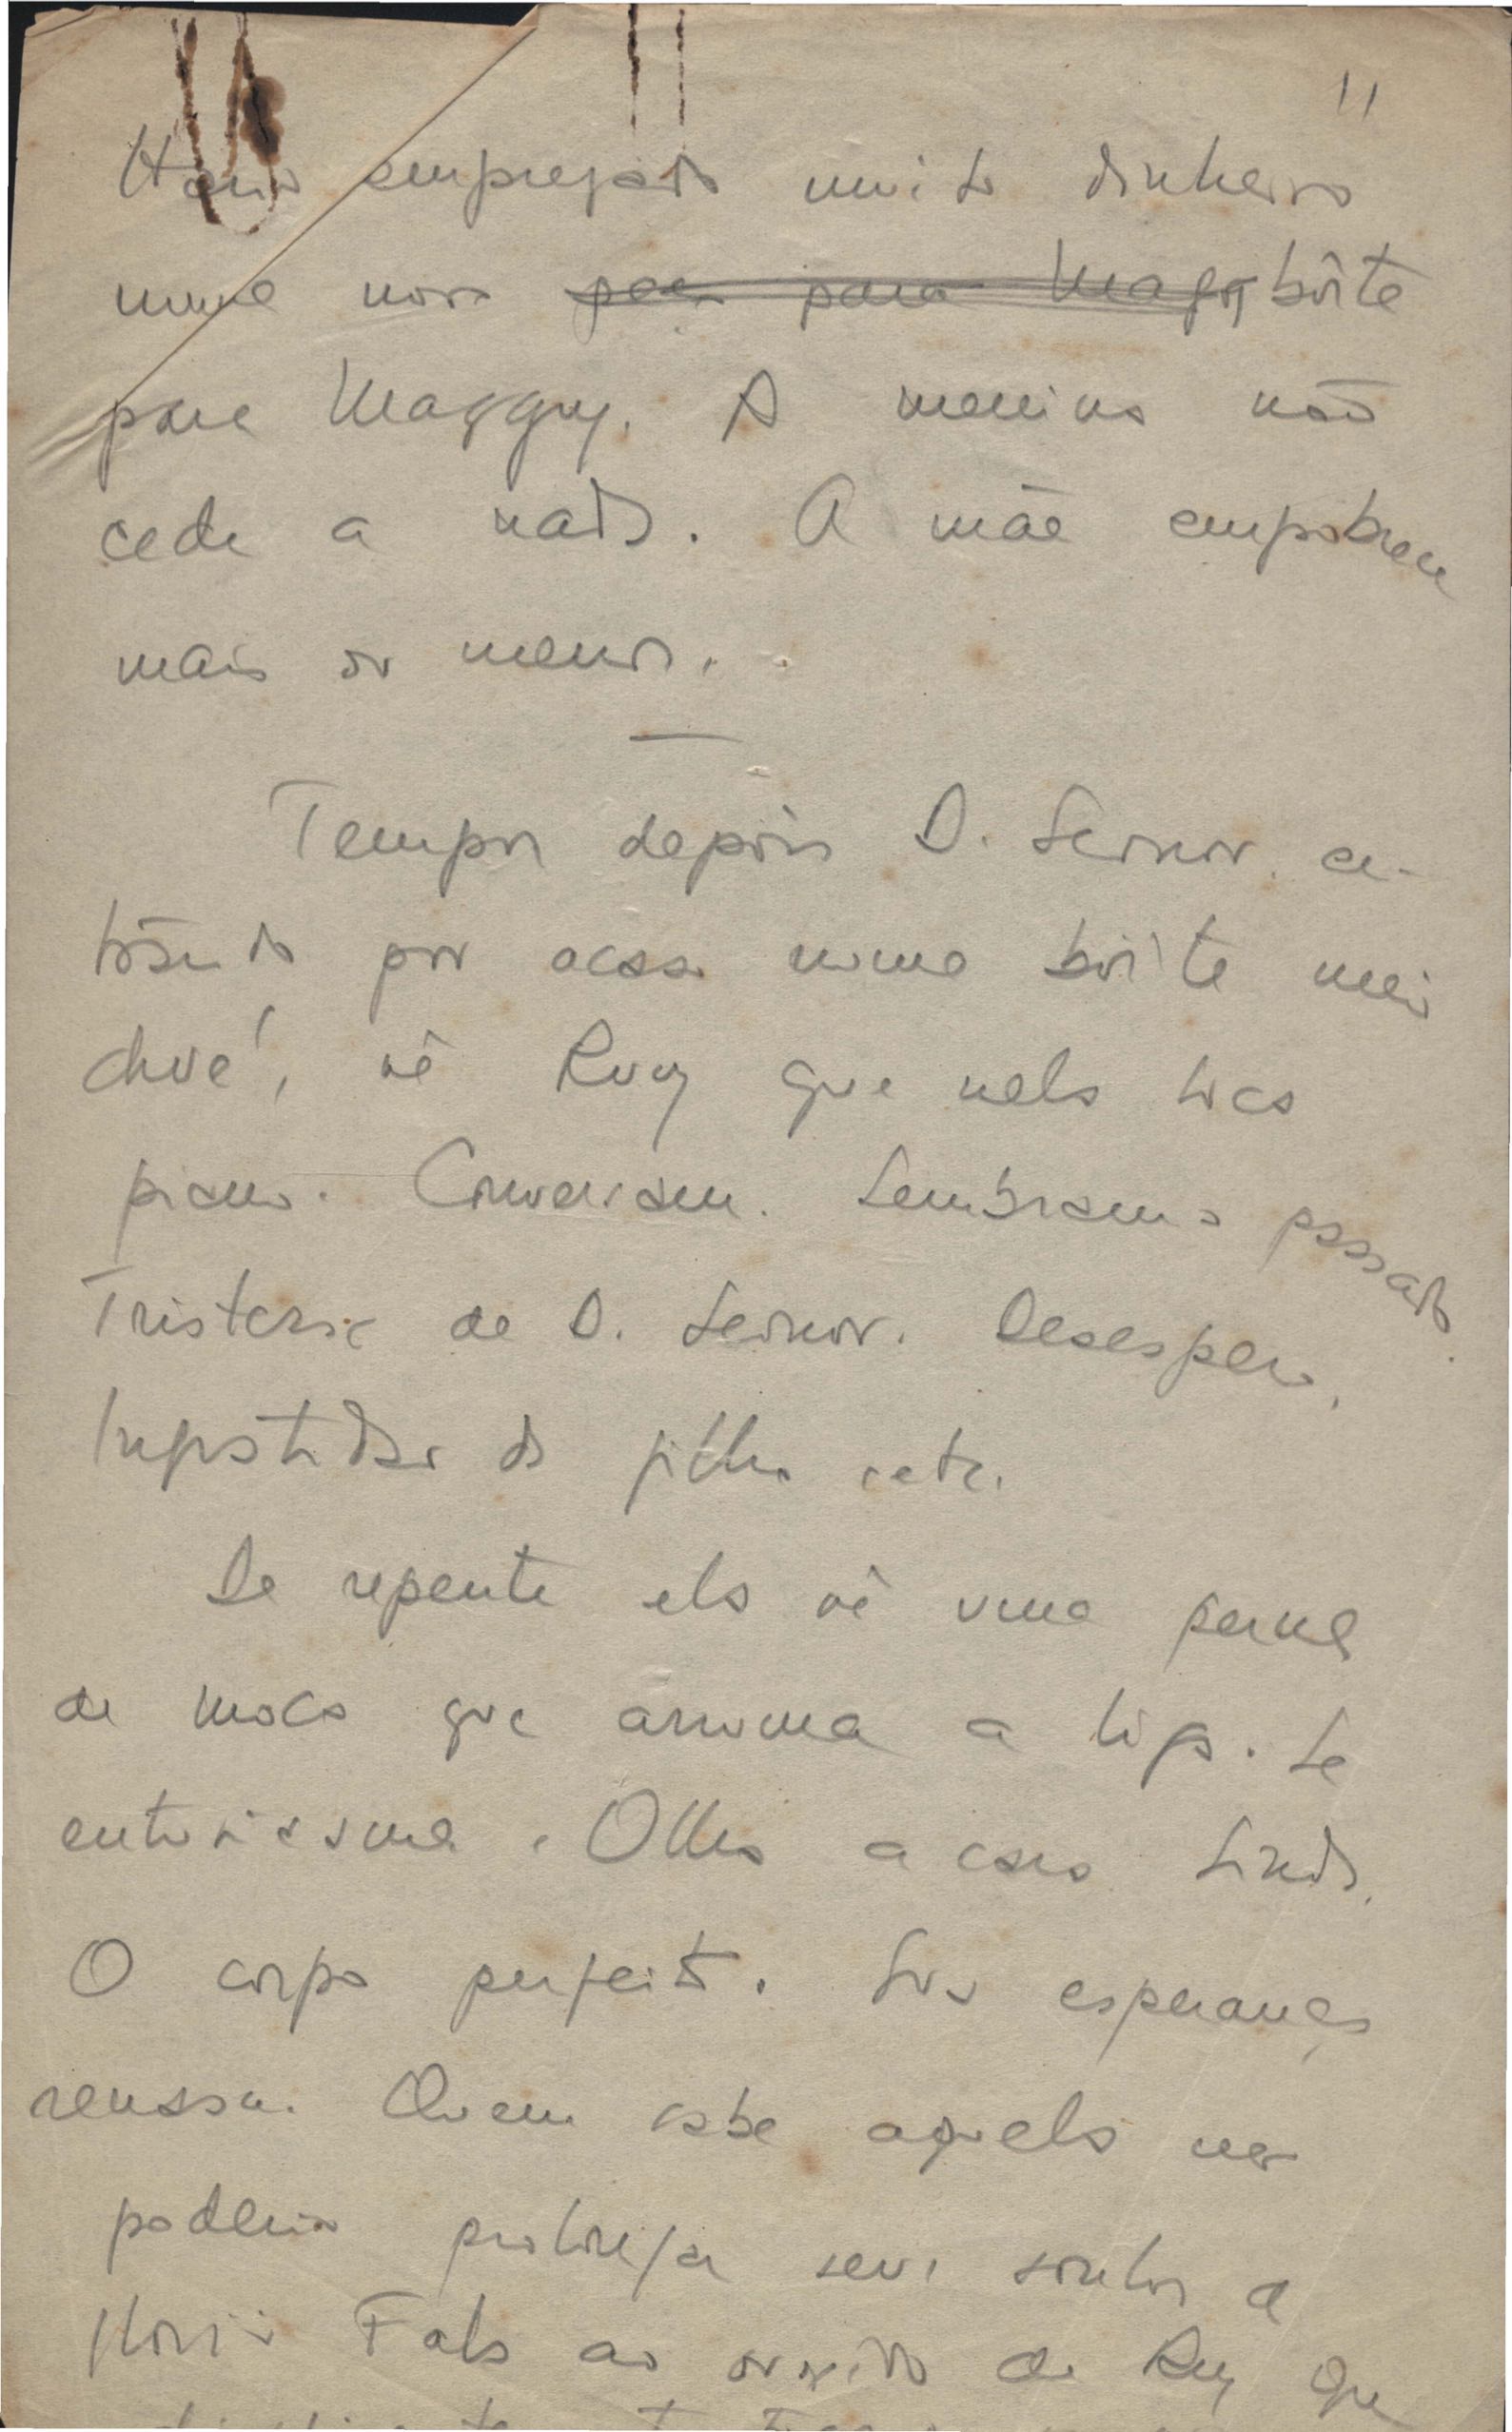 11
Havia empregado muito dinheiro
numa nova ~~para Maggy~~ boîte
para Maggy. A menina não
cede a nada. A mãe empobrece
mais ou menos.
Tempos depois D. Leonor en-
trando por acaso numa boîte meio
chué, vê Ruy que nela toca
piano. Conversam. Lembram o passado.
Tristeza de D. Leonor. Desespero.
Ingratidão da filha etc.
De repente ela vê uma perna
de moça que arruma a liga. Se
entusiasma. Olha a cara. Linda.
O corpo perfeito. Sua esperança
renasce. Quem sabe aquela não
poderia prolongar seus sonhos de
glória. Fala ao ouvido de Ruy que